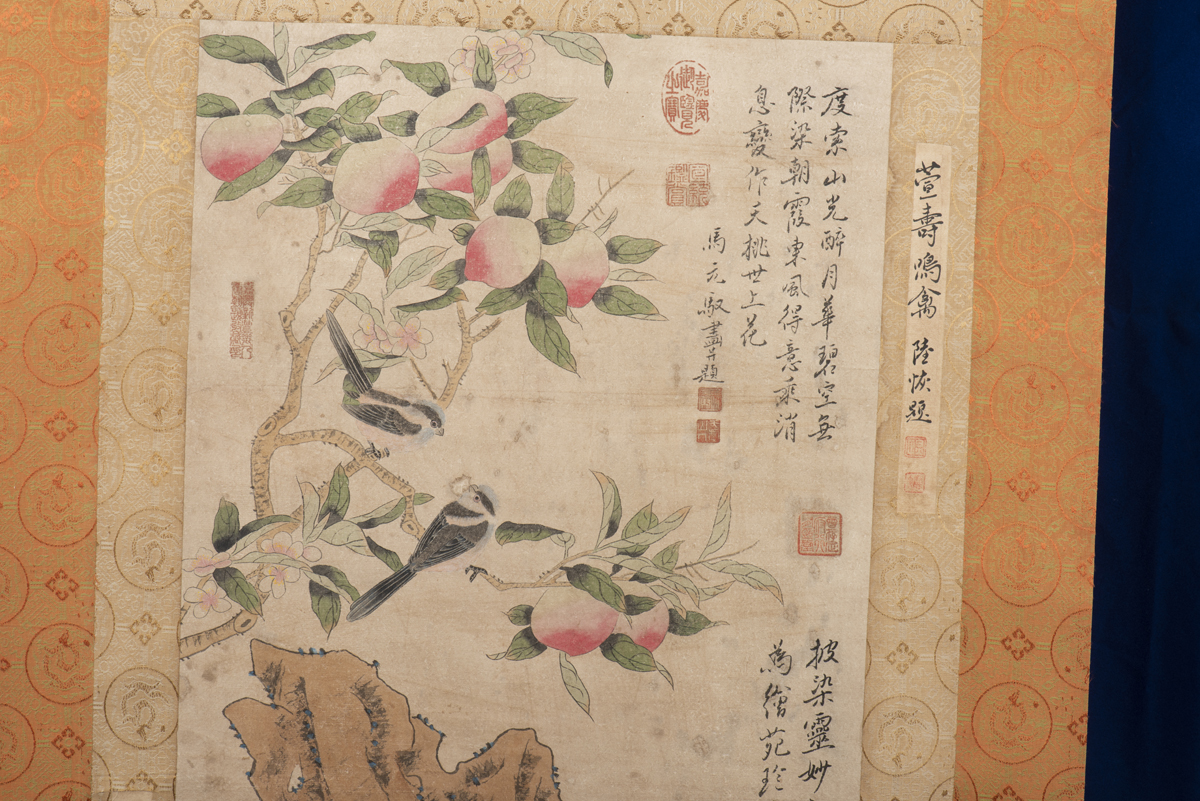 萱壽鳴禽 陸恢題
度索山光醉月華碧空無
際染朝霞東風得意乘消
息變作夭桃世上花
馬元馭畫并題
嘉慶御覽之寶
披染靈妙
為繪苑珍